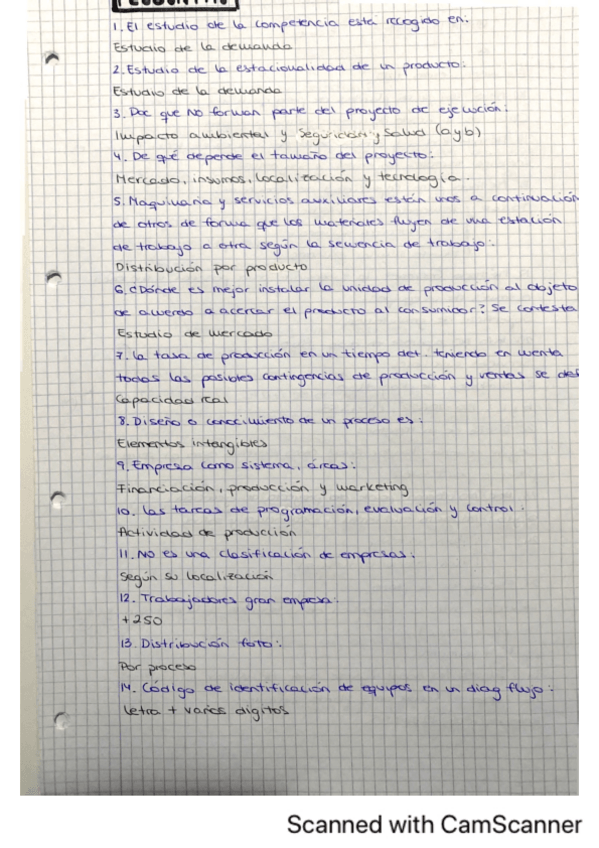 1. El estudio de la competencia esta recogido en:
Estudio de la demanda
2. Estudio de la estacionalidad de un producto:
Estudio de la demanda
3. Doc que NO forman parte del proyecto de ejecución:
Impacto ambiental y Seguridad y Salud (a y b)
4. De qué depende el tamaño del proyecto:
Mercado, insumos, localización y tecnología.
5. Maquinaria y servicios auxiliares están unos a continuación
de otros de forma que los materiales fluyen de una estación
de trabajo a otra según la secuencia de trabajo:
Distribución por producto
6. ¿Dónde es mejor instalar la unidad de producción al objeto
de acuerdo a acercar el producto al consumidor? Se contesta
Estudio de mercado
7. La tasa de producción en un tiempo det. teniendo en cuenta
todas las posibles contingencias de producción y ventas se de
Capacidad real
8. Diseño o conocimiento de un proceso es:
Elementos intangibles
9. Empresa como sistema, áreas:
Financiación, producción y marketing
10. Las tareas de programación, evaluación y control.
Actividad de producción
11. NO es una clasificación de empresas:
Según su localización
12. Trabajadores gran empresa:
+250
13. Distribución foto:
Por proceso
14. Código de identificación de equipos en un diag flujo:
Letra + varios digitos
Scanned with CamScanner